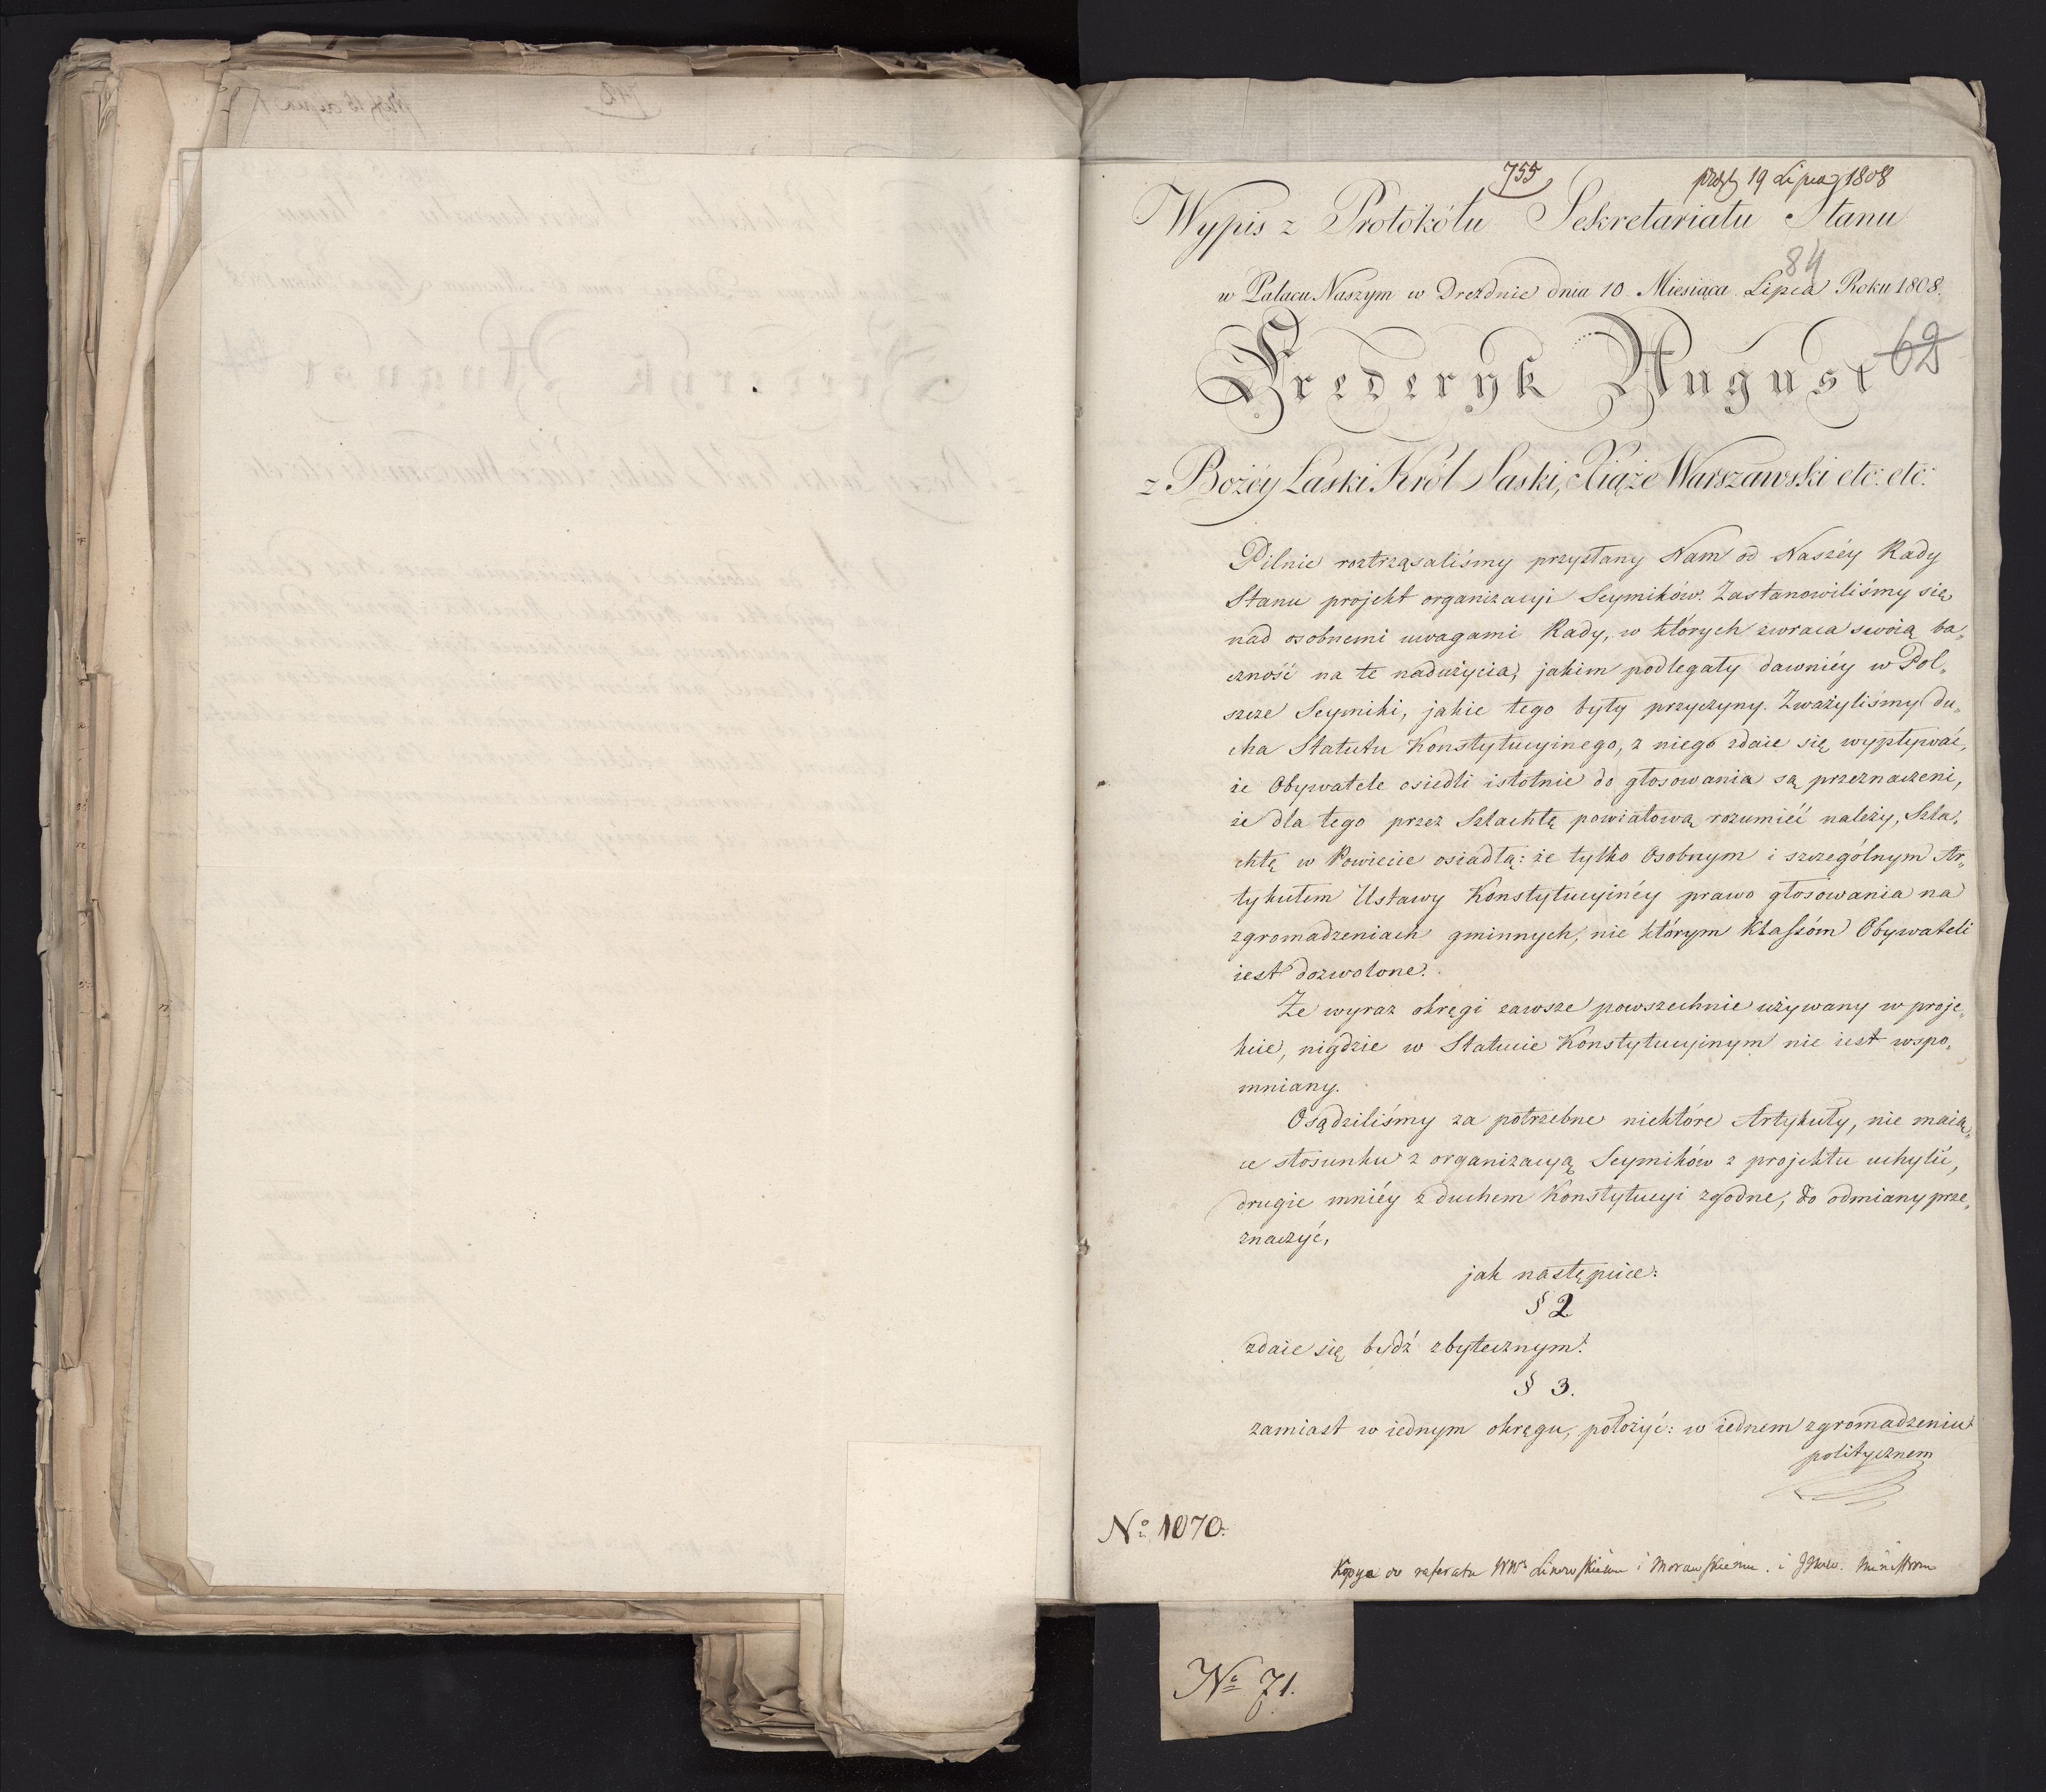 755
19 Lipca 1808
Wypis z Protokółu Sekretariatu Stanu
84
w Pałacu Naszym w Dreźdnie dnia 10 Miesiąca Lipca Roku 1808.
Frederyk August
62
z Bożéy Łaski Król Saski, Xiąże Warszawski etc: etc:
Pilnie roztrząsaliśmy przysłany Nam od Naszéy Rady
Stanu projekt organizacyi Seymików. Zastanowiliśmy się
nad osobnemi uwagami Rady, w których zwraca swoią ba„
czność na te nadużycia, jakim podlegały dawniéy w Pol„
szcze Seymiki, jakie tego były przyczyny. Zważyliśmy du„
cha Statutu Konstytucyinego, z niego zdaie się wypływać,
że Obywatele osiedli istotnie do głosowania są przeznaczeni,
że dla tego przez Szlachtę powiatową rozumieć należy, Szla„
chtę w Powiecie osiadłą: że tylko Osobnym i szczególnym Ar„
tykułem Ustawy Konstytucyinéy prawo głosowania na
zgromadzeniach gminnych, nie którym Klassóm Obywateli
iest dozwolone.
Że wyraz okręgi zawsze powszechnie używany w proje„
kcie, nigdzie w Statucie Konstytucyinym nie iest wspo„
mniany.
Osądziliśmy za potrzebne niektóre Artykuły, nie maią„
ce stosunku z organizacyą Seymików z projektu uchylić,
drugie mniéy z duchem Konstytucyi zgodne, do odmiany prze„
znaczyć,
jak następuie:
§ 2
zdaie się bydź zbytecznym.
§ 3.
zamiast w iednym okręgu, położyć: w iednem zgromadzeniu
politycznem
No 1070.
Kopye do referatu Linowskiemu i Morawskiemu. i Ministrom
No 71.